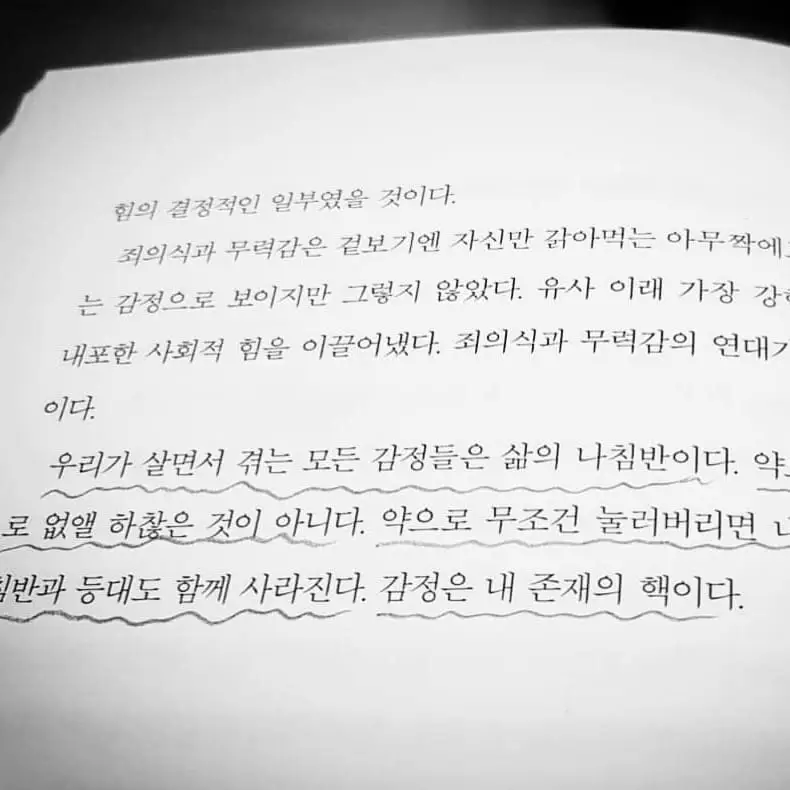 힘의 결정적인 일부였을 것이다.
죄의식과 무력감은 겉보기엔 자신만 갉아먹는 아무짝에
는 감정으로 보이지만 그렇지 않았다. 유사 이래 가장
내포한 사회적 힘을 이끌어냈다. 죄의식과 무력감의
이다.
우리가 살면서 겪는 모든 감정들은 삶의 나침반이다.
로 없앨 하찮은 것이 아니다. 약으로 무조건 눌러버리면
등대도 함께 사라진다. 감정은 내 존재의 핵이다.